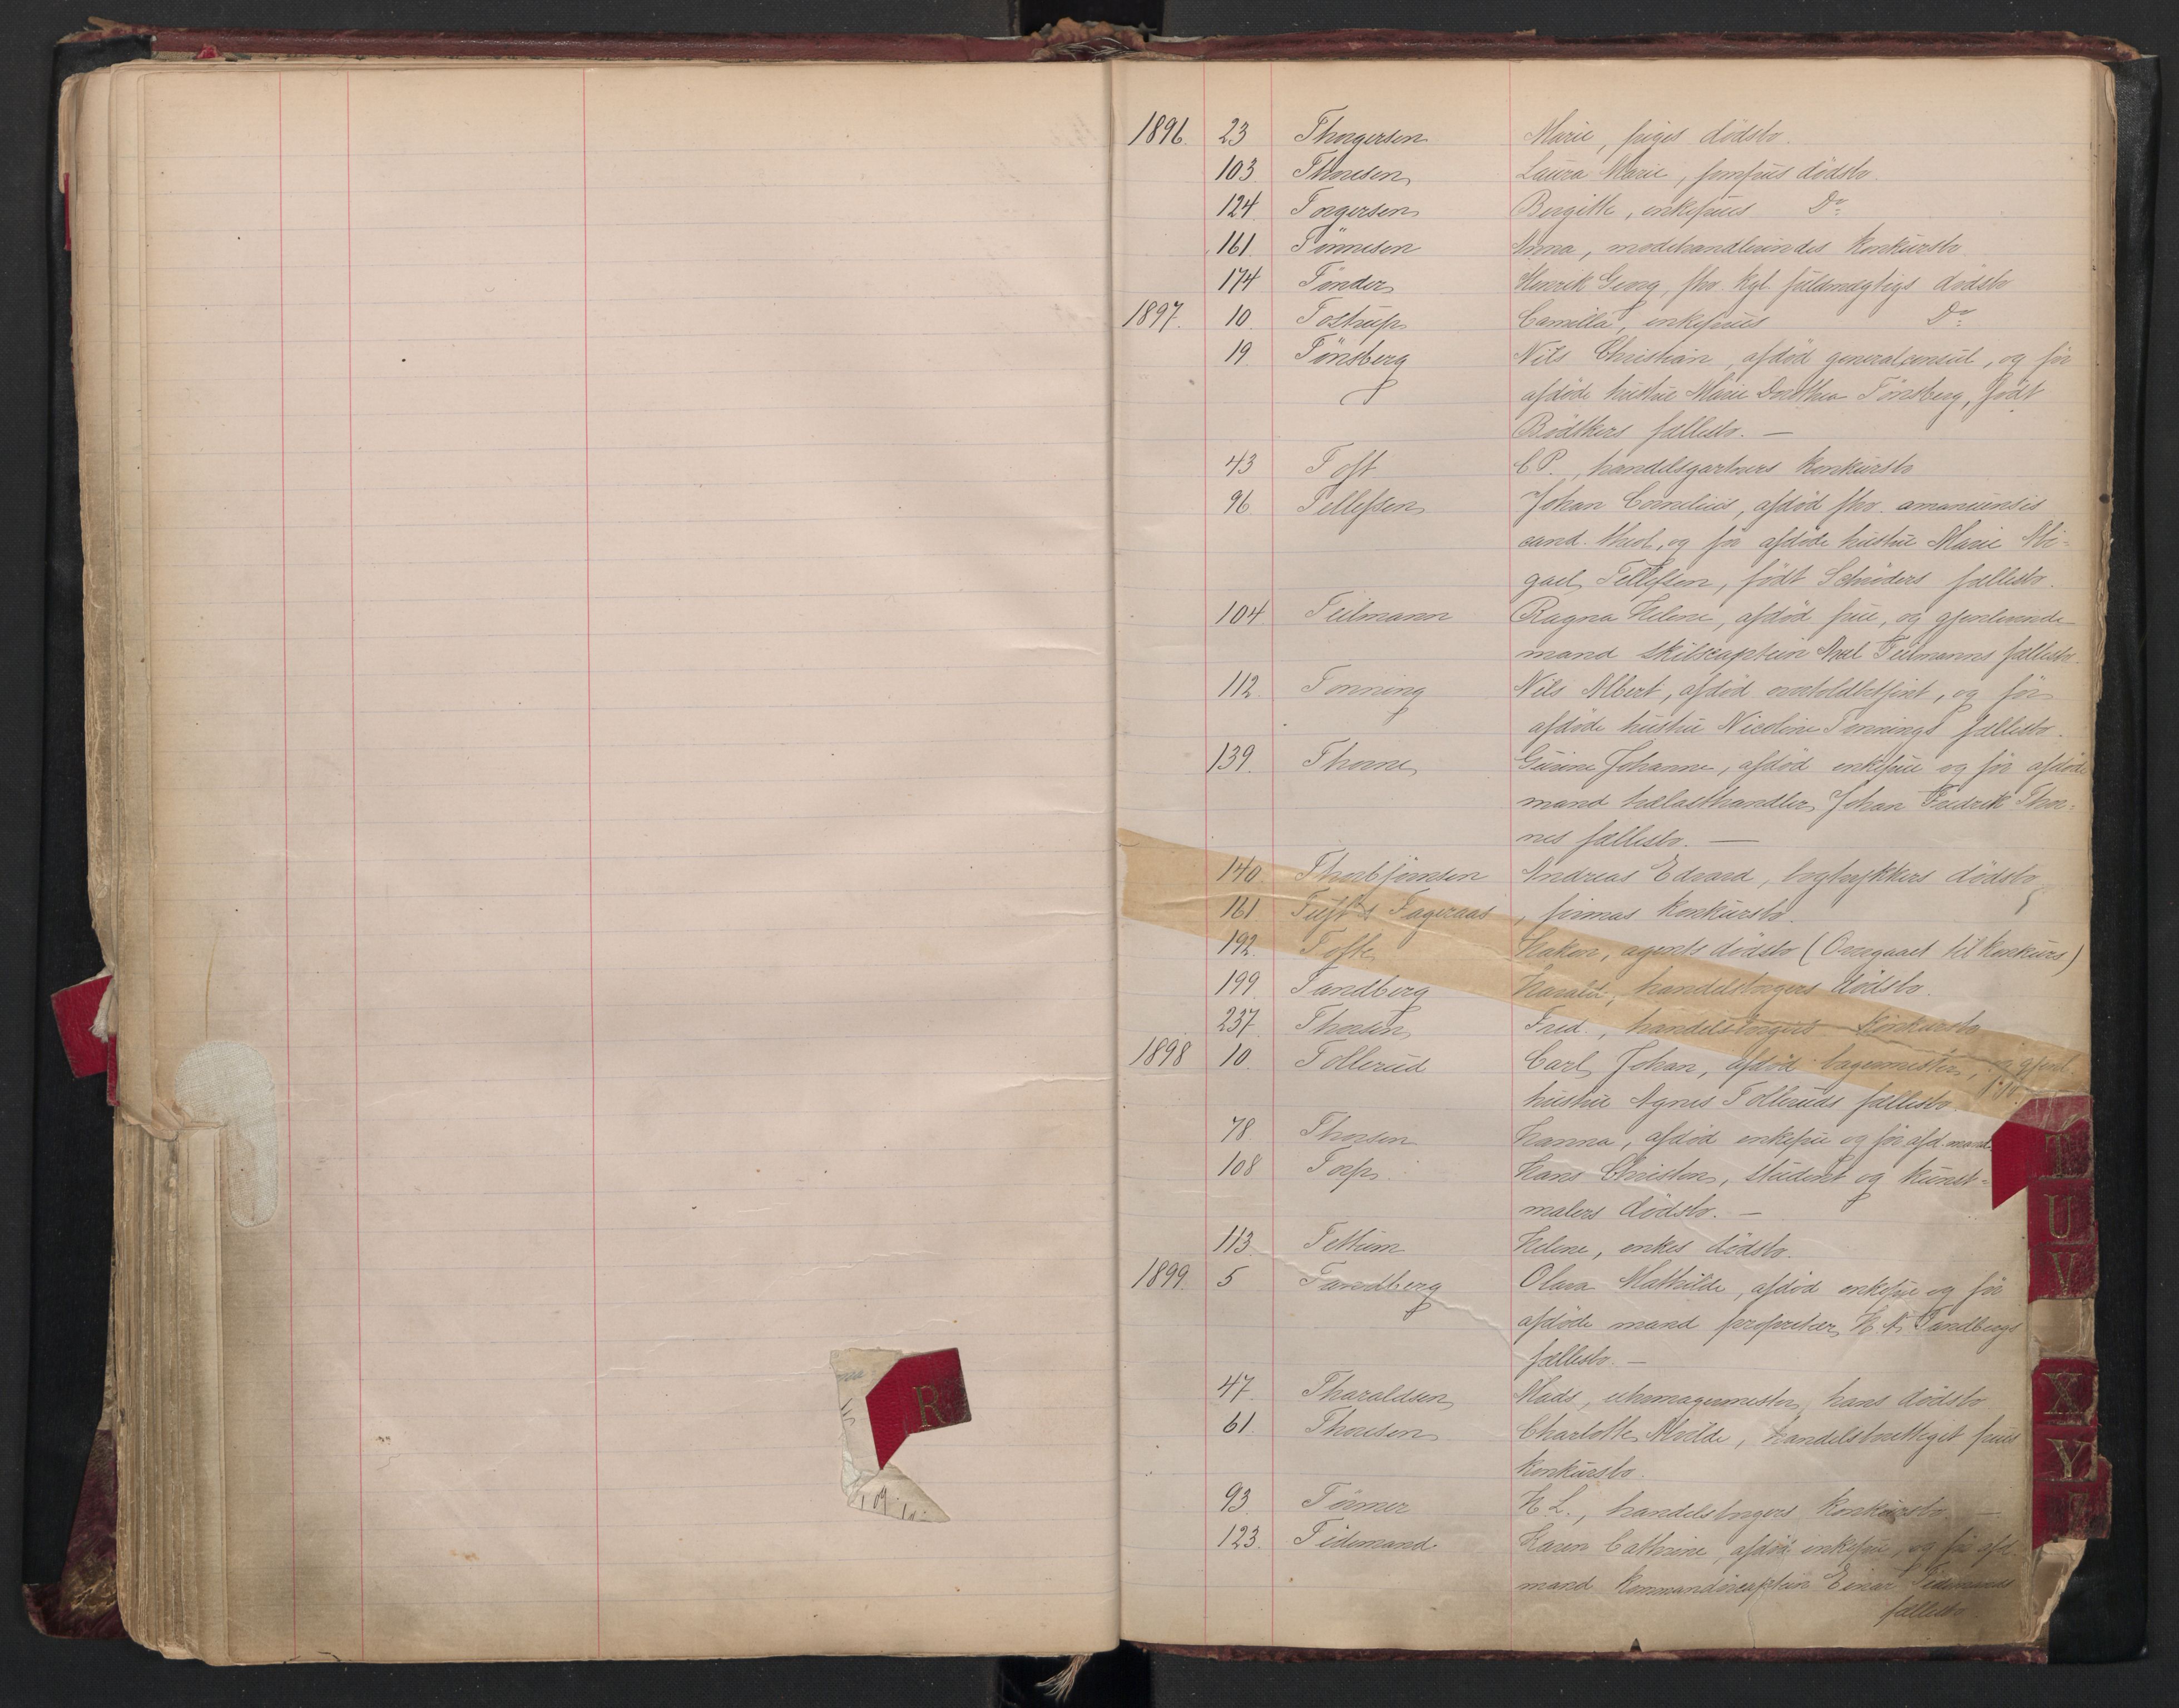 1896. 23 Thorgersen Marie, piges dødsbo.
103 Thoresen Laura Marie, jomfrus dødsbo.
124 Torgersen Bergitte, enkefrues Do.
161. Tønnesen Anna, modehandlerindes konkursbo.
174 Tønder Henrik Georg, fhv. kgl. fuldmægtigs dødsbo
1897. 10. Tostrup Camilla, enkefrues Do.
19. Tønsberg Nils Christian, afdød generalconsul, og før
afdøde hustru Marie Dorothea Tønsberg, født
Bødtkers fællesbo. —
43 Toft C. P., handelsgartners konkursbo
96 Tellefsen Johan Cornelius, afdød fhv. amanuensis
cand. theol., og før afdøde hustru Marie Abi-
gael Tellefsen, født Schrøders fællesbo.
104. Teilmann Ragna Helene, afdød frue, og gjenlevende
mand skibscaptein Axel Teilmanns fællesbo.
112. Tonning Nils Albert, afdød overtoldbetjent, og før
afdøde hustru Nicoline Tonnings fællesbo.
139. Thorne Gurine Johanne, afdød enkefrue og før afdøde
mand trælasthandler Johan Fredrik Thor-
nes fællesbo. —
140. Thorbjørnsen Andreas Edvard, bogtrykkers dødsbo
161. Tuft & Fageraas, firmas konkursbo.
192. Tofte Hakon, agents dødsbo (Overgaaet til konkurs)
199 Tandberg Harald, handelsborgers dødsbo.
237. Thorsen Fred., handelsborgers konkursbo
1898 10. Tollerud Carl Johan, afdød bagermester, og gjenl.
hustru Agnes Tolleruds fællesbo.
78. Thorsen Hanna, afdød enkefrue og før afd. mand
108 Torp. Hans Christen, student og kunst-
malers dødsbo. —
113. Tettum Helene, enkes dødsbo.
1899. 5 Tandberg Olava Mathilde, afdød enkefrue og før
afdøde mand proprietær H. N. Tandbergs
fællesbo. —
47. Tharaldsen Mads, uhrmagermester, hans dødsbo
61. Thoresen Charlotte Alvilde, handelsberettiget frues
konkursbo.
93. Tømer H. L., handelsborgers konkursbo. —
123. Tidemand Karen Cathrine, afdød enkefrue, og før afd.
mand kommandørcaptein Einar Tidemands
fællesbo.
R
T
U
V
X
Y